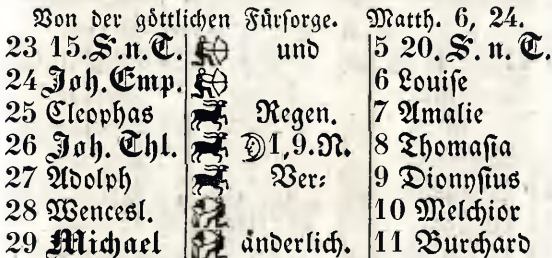 Von der göttlichen Fürsorge. Matth. 6, 24.
23 15. S. n. T. und 5 20. S. n. T.
24 Joh. Emp. 6 Louise
25 Cleophas Regen. 7 Amalie
26 Joh. Thl. ☽1,9.N. 8 Thomasia
27 Adolph Ver- 9 Dionysius
28 Wencesl. 10 Melchior
29 Michael änderlich. 11 Burchard